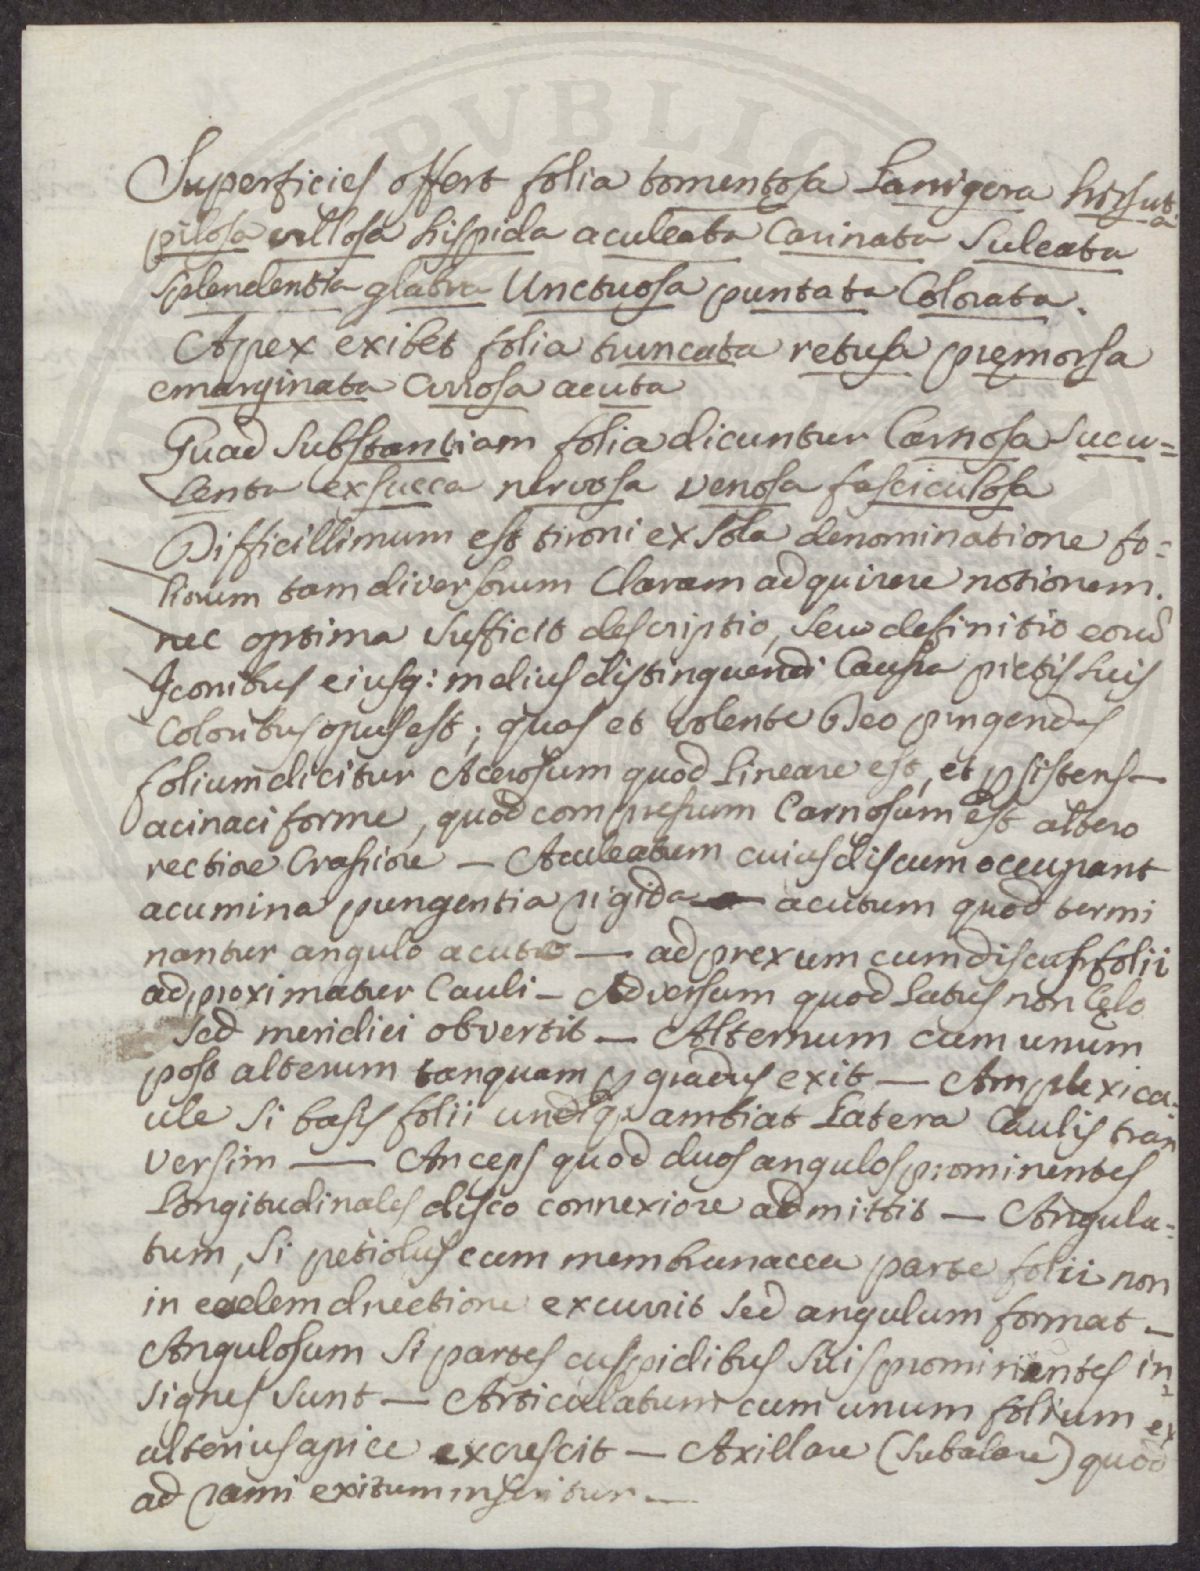 Superficies offert folia tomentosa Lanigera hirsuta
pilosa villosa hispida aculeata Carinata Sulcata
splendentia glabra Unctuosa puntata Colorata.
Apex exibet folia truncata retusa pręmorsa
emarginata Cirrosa acuta
Quad Substantiam folia dicuntur Carnosa Sucu=
lenta exsucca nervosa venosa fasciculosa
Difficillimum est tironi ex sola denominatione fo=
liorum tam diversorum Claram adquirere notionem.
nec optima sufficit descriptio, seu definitio eorū
Iconibus eiusq: melius distinguendi Causa pictis suis
Coloribus opus est; quas et volente Deo pingendas
folium dicitur Acerosum quod lineare est, et psistens —
acinaciforme, quod compresum Carnosum est altero
rectiore Crassiore — Aculeatum cuius discum occupant
acumina pungentia rigida — acutum quod termi
nantur angulo acuto — adprexum cum discus folii
adproximatur Cauli — Adversum quod Latus non Cęlo
sed meridiei obvertit — Alternum cum unum
post alterum tanquam p gradus exit — Amplexica=
ule si basis folii undiq: ambiat Latera Caulis tran
versim — Anceps quod duos angulos prominentes
Longitudinales disco connexiore admittit — Angula=
tum, si petiolus cum membranacea parte folii non
in eadem directione excurrit sed angulum format —
Angulosum si partes cuspidibus suis prominentes in=
signes sunt — Articulatum cum unum folium ex
alterius apice excrescit — Axillare (subalare) quod
ad rami exitum inseritur —
PVBLIC